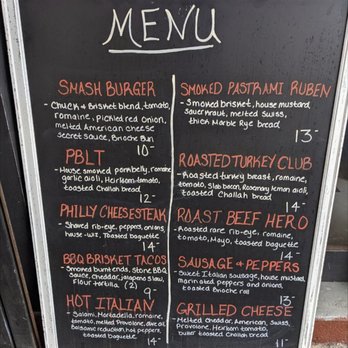 MENU
SMASH BURGER
- Chuck & Brisket blend, tomato,
romaine, pickled red Onion,
melted American cheese
secret sauce, Brioche Bun
10-
PBLT
- House smoked porkbelly, romaine
garlic aioli, Heirloom tomato,
toasted Challah bread
12-
PHILLY CHEESESTEAK
- Shaved rib-eye, peppers, onions,
house-wiz, Toasted baguette
14-
BBQ BRISKET TACOS
- Smoked burnt ends, Stone BBQ
Sauce, Cheddar, jalapeno slaw,
Flour tortilla (2)
9-
HOT ITALIAN
- Salami, Mortadella, romaine,
tomato, melted Provolone, olive oil
balsamic reduction, hot peppers
toasted baguette
14
SMOKED PASTRAMI RUBEN
- Smoked brisket, house mustard,
sauerkraut, melted Swiss,
thick Marble Rye bread
13-
ROASTED TURKEY CLUB
- Roasted turkey breast, romaine,
tomato, Slab bacon, Rosemary lemon aioli,
toasted Challah bread
14-
ROAST BEEF HERO
- Roasted rare rib-eye, romaine,
tomato, Mayo, toasted baguette
14-
SAUSAGE & PEPPERS
- Sweet Italian sausage, house mustard,
marinated peppers and onions,
toasted Brioche roll
13-
GRILLED CHEESE
- Melted cheddar, American, Swiss,
Provolone, Heirloom tomato,
butter toasted Challah bread
11-